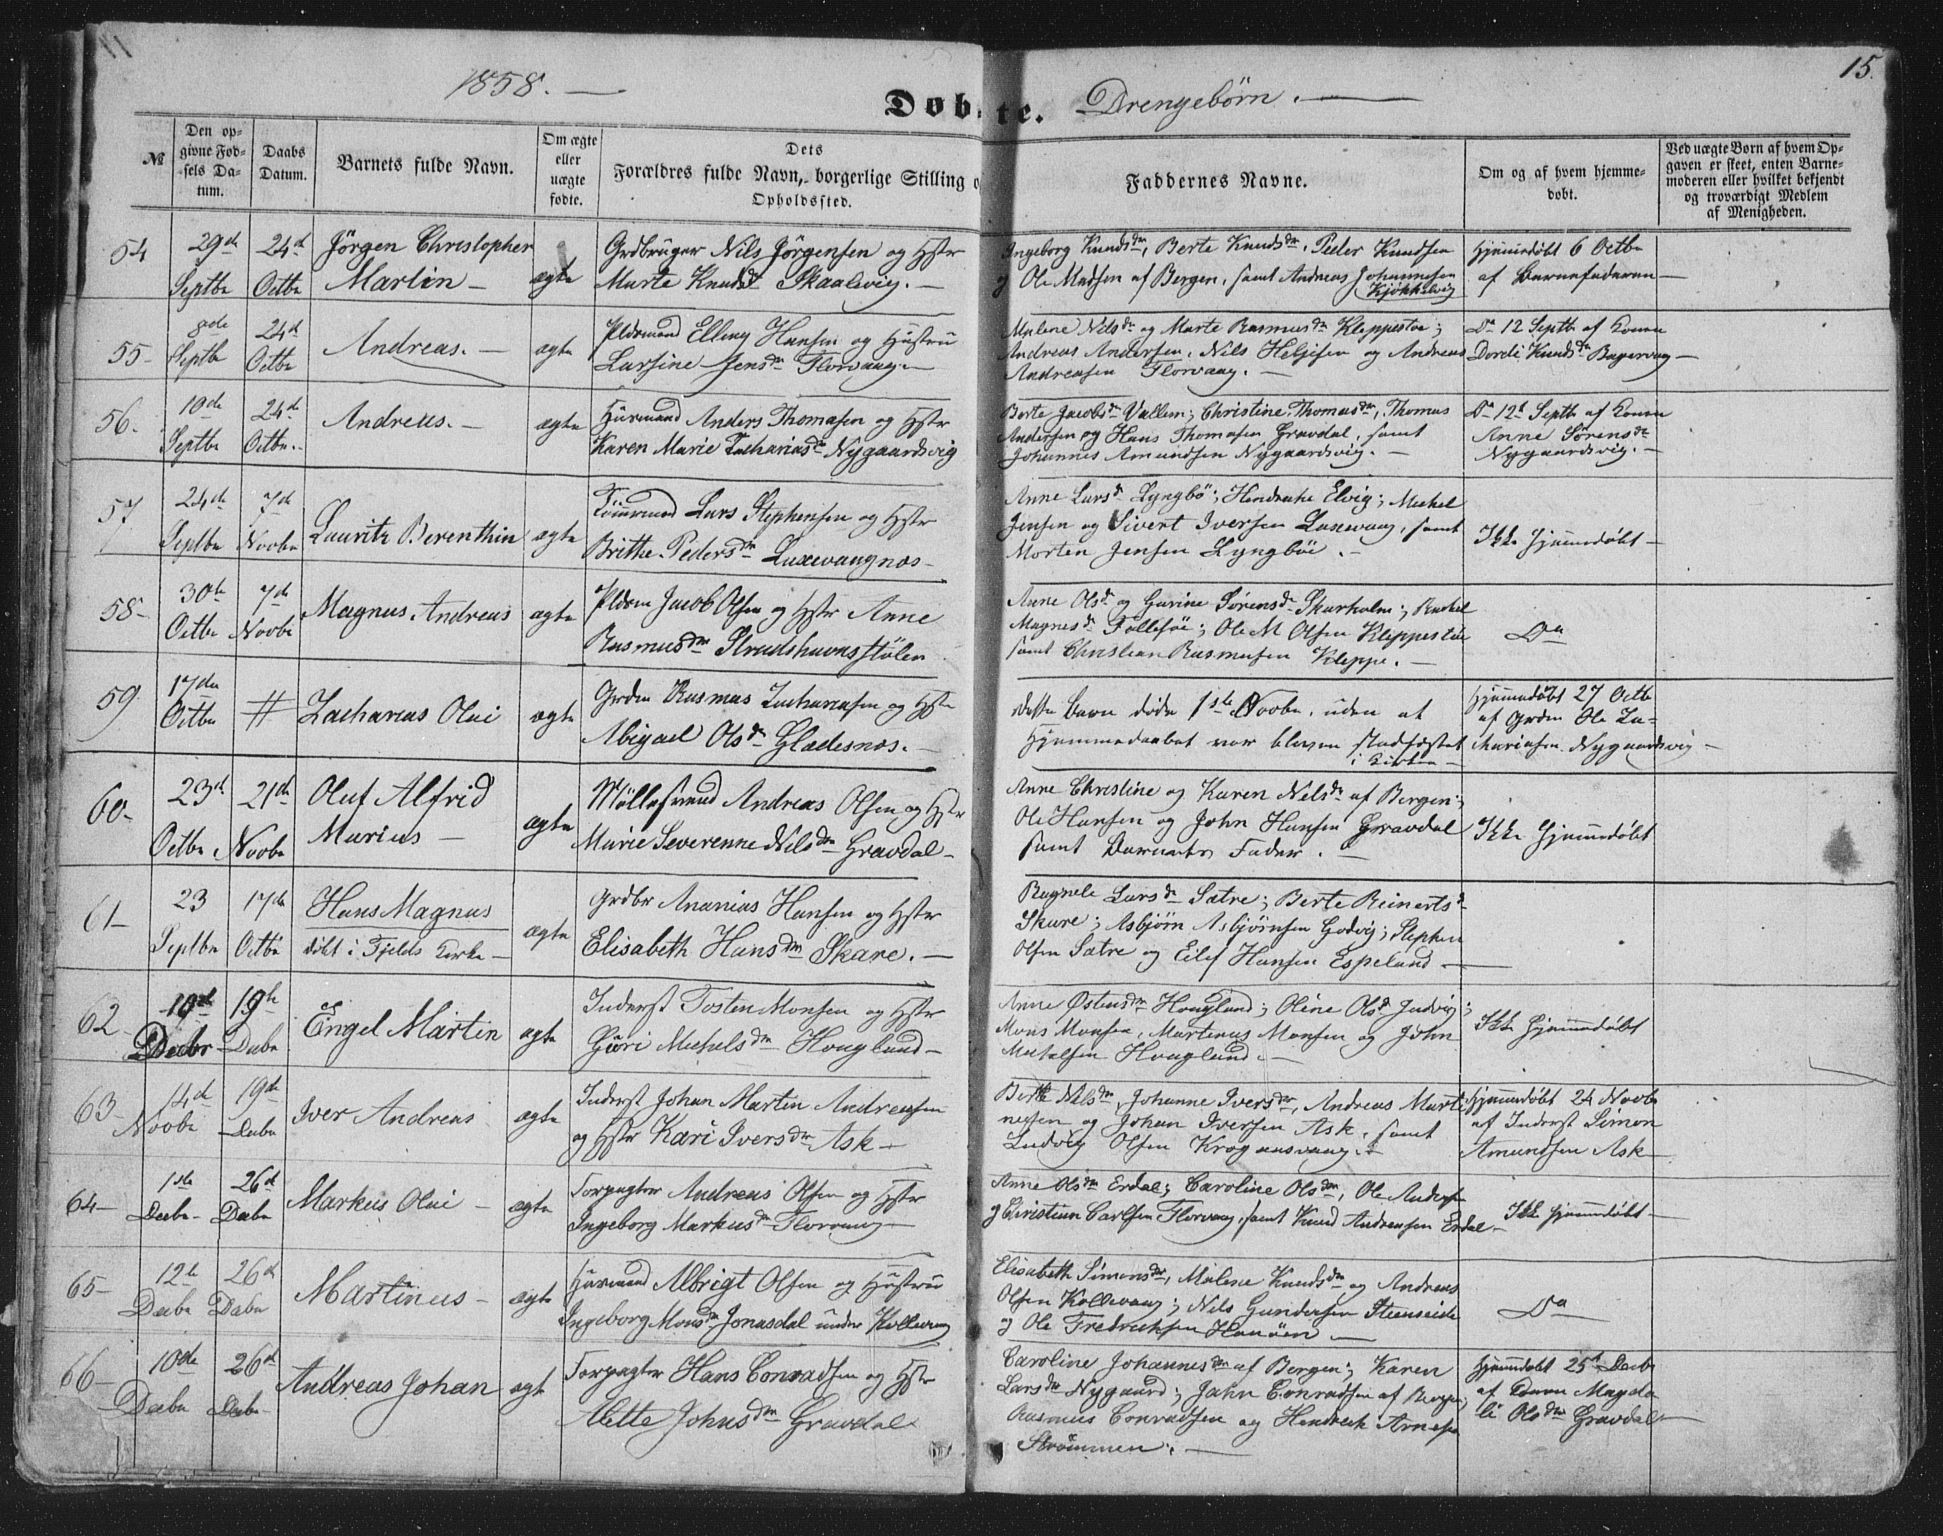 15.
1858. —
Døbte. Drengebørn. —
№
Den opgivne Fødsels Datum.
Daabs Datum.
Barnets fulde Navn.
Om ægte eller uægte fødte.
Dets Forældres fulde Navn, borgerlige Stilling o
Opholdssted.
Faddernes Navne.
Om og af hvem hjemmedøbt.
Ved uægte Børn af hvem Opgaven er skeet, enten Barnemoderen eller hvilket bekjendt og troværdigt Medlem af Menigheden.
54
29de Septbr
24de Octbr
Jørgen Christopher
Martin —
ægte
Grdbruger Nils Jørgensen og Hstr
Marte Knudsdr Skaalevig. —
Ingeborg Knudsdr, Berte Knudsdr, Peder Knudsen
og Ole Madsen af Bergen, samt Andreas Johannesen
Kjøkkelvig
Hjemmedøbt 6 Octbr
af Barnefaderen —
55
8de Septbr
24de Octbr
Andreas. —
ægte
Elling Hansen og Hustru
Larsine Jensdr Florvaag. —
Malene Nilsdr og Marte Rasmusdr Kleppestøe;
Andreas Andersen, Nils Heljesen og Andreas
Andreasen Florvaag. —
Do 12 Septbr af Konen
Dorde Knudsdr —
56.
10de Septbr
24de Octbr.
Andreas. —
ægte
Huusmand Anders Thomasen og Hstr
Karen Marie Zachariasdr Nygaardsvig
Berte Jacobsdr Vallem; Christine Thomasdr, Thomas
Andersen og Hans Thomasen Gravdal, samt
Johannes Amundsen Nygaardsvig. —
Do 12te Septbr af Konen
Anne Sørensdr
Nygaardsvig. —
57
24de Septbr
7de Novbr
Lauritz Berenthin
ægte
Lars Stephensen og Hstr
Brithe Pedersdr Laxevaagnæs —
Anne Larsdr Lyngbø; Hendrikke Elvig; Mickel
Jensen og Sivert Iversen Laxevaag, samt
Morten Jensen Lyngbøe. —
Ikke Hjemmedøbt —
58
30te Octbr
7de Novbr
Magnus Andreas
ægte
Jacob Olsen og Hstr Anne
Rasmusdr Strudshavnsstølen
Anne Olsdr og Gurine Sørensdr Skarholm; Rachel
Magnesdr Follesøe; Ole M Olsen Kleppestøe
samt Christian Rasmusen Kleppe. —
Do
59
17de Octbr
#
Zacharias Olai
ægte
Grdm Rasmus Zachariasen og Hstr
Abigael Olsdr Gladesnæs. —
dette Barn døde 1ste Novbr, uden at
Hjemmedaaben var bleven stadfæstet
i Kirken —
Hjemmedøbt 27 Octbr
af Grdm Ole Za-
chariasen Nygaardsvig —
60
23de Octbr
21de Novbr
Oluf Alfrid
Marius —
ægte
Møllesvend Andreas Olsen og Hstr
Marie Severenne Nilsdr Gravdal —
Anne Christine og Karen Nilsdr af Bergen;
Ole Hansen og John Hansen Gravdal
samt Barnets Fader. —
Ikke Hjemmedøbt
61
23 Septbr
17de Octbr
Hans Magnus
døbt i Fjelds Kirke —
ægte
Grdbr Ananias Hansen og Hstr
Elisabeth Hansdr Skare. —
Ragnele Larsdr Satre; Berte Reinertsdr
Skare; Asbjørn Asbjørnsen Godvig; Stephen
Olsen Satre og Eilef Hansen Espeland —
62
10de Decbr
19de Decbr
Engel Martin
ægte
Inderst Tosten Monsen og Hstr
Guri Mickelsdr Hougland —
Anne Østensdr Hougland; Oline Olsdr Judvig;
Mons Monsen, Martinus Monsen og John
Mickelsen Hougland. —
Ikke Hjemmedøbt
63
14de Novbr
19de Decbr
Iver Andreas
ægte
Inderst Johan Martin Andreasen
og Hstr Kari Iversdr Ask —
Berthe Nilsdr, Johanne Iversdr, Andreas Marti-
nessen og Johan Iversen Ask, samt
Ludvig Olsen Krogaasvaag. —
Hjemmedøbt 24 Novbr
af Inderst Simon
Amundsen Ask —
64
1ste Decbr
26de Decbr
Markus Olai —
ægte
Forpagter Andreas Olsen og Hstr
Ingeborg Markusdr Florvaag —
Anne Olsdr Erdal; Caroline Olsdr, Ole Anders
og Christian Carlsen Florvaag, samt Knud Andreasen Erdal —
Ikke hjemmedøbt —
65
12te Decbr
26de Decbr
Martinus —
ægte
Huusmand Albrigt Olsen og Hustru
Ingeborg Monsdr Jonasdal under Kollevaag
Elisabeth Simonsdr, Malene Knudsdr og Andreas
Olsen Kollevaag; Nils Gundersen Steenseide
og Ole Fredricksen Hanøen —
Do
66
10de Decbr
26de Decbr
Andreas Johan
ægte
Forpagter Hans Conradsen og Hstr
Alette Johnsdr Gravdal.
Caroline Johannesdr af Bergen; Karen
Larsdr Nygaard; Jahn Conradsen af Bergen;
Rasmus Conradsen og Hendrick Arnesen
Strømmen. —
Hjemmedøbt 25de Decbr
af Konen Magda-
li Olsdr Gravdal —